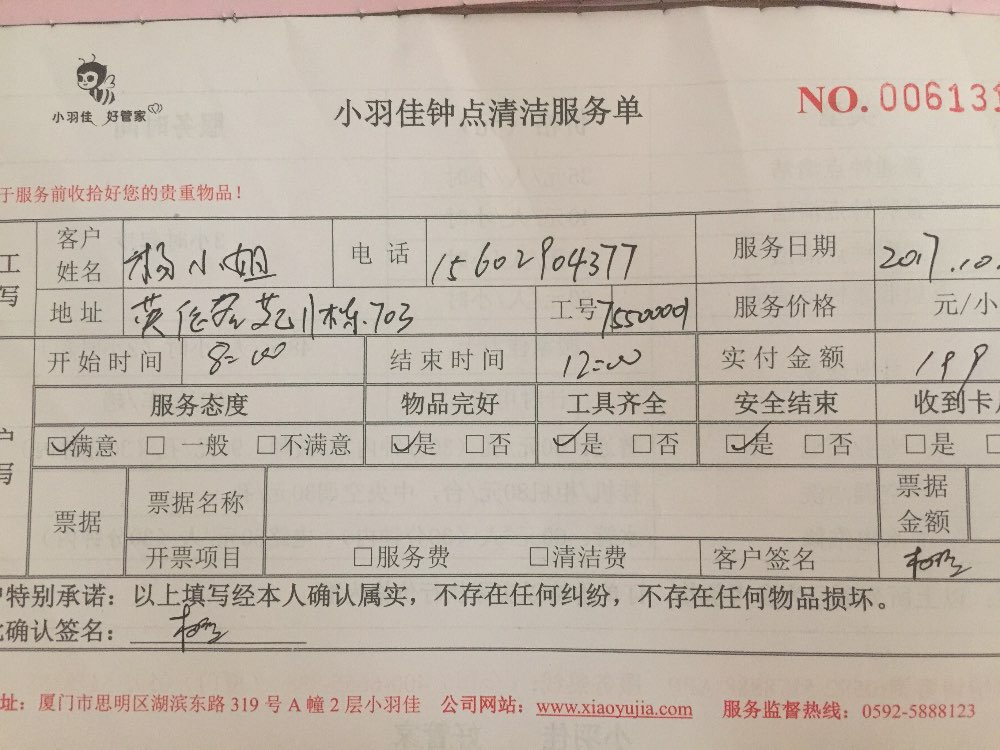 小羽佳 好管家
小羽佳钟点清洁服务单
NO. 006131
于服务前收拾好您的贵重物品！
工
写
客户姓名 杨小姐 电话 15602904377 服务日期 2017.10.
地址 703 工号 7550001 服务价格 元/小
开始时间 8:00 结束时间 12:00 实付金额 199
服务态度 物品完好 工具齐全 安全结束 收到卡
户
写
☑满意 □一般 □不满意 ☑是 □否 ☑是 □否 ☑是 □否 □是
票据 票据名称 票据金额
开票项目 □服务费 □清洁费 客户签名
户特别承诺：以上填写经本人确认属实，不存在任何纠纷，不存在任何物品损坏。
此确认签名：
址：厦门市思明区湖滨东路 319 号 A 幢 2 层小羽佳 公司网站：www.xiaoyujia.com 服务监督热线：0592-5888123